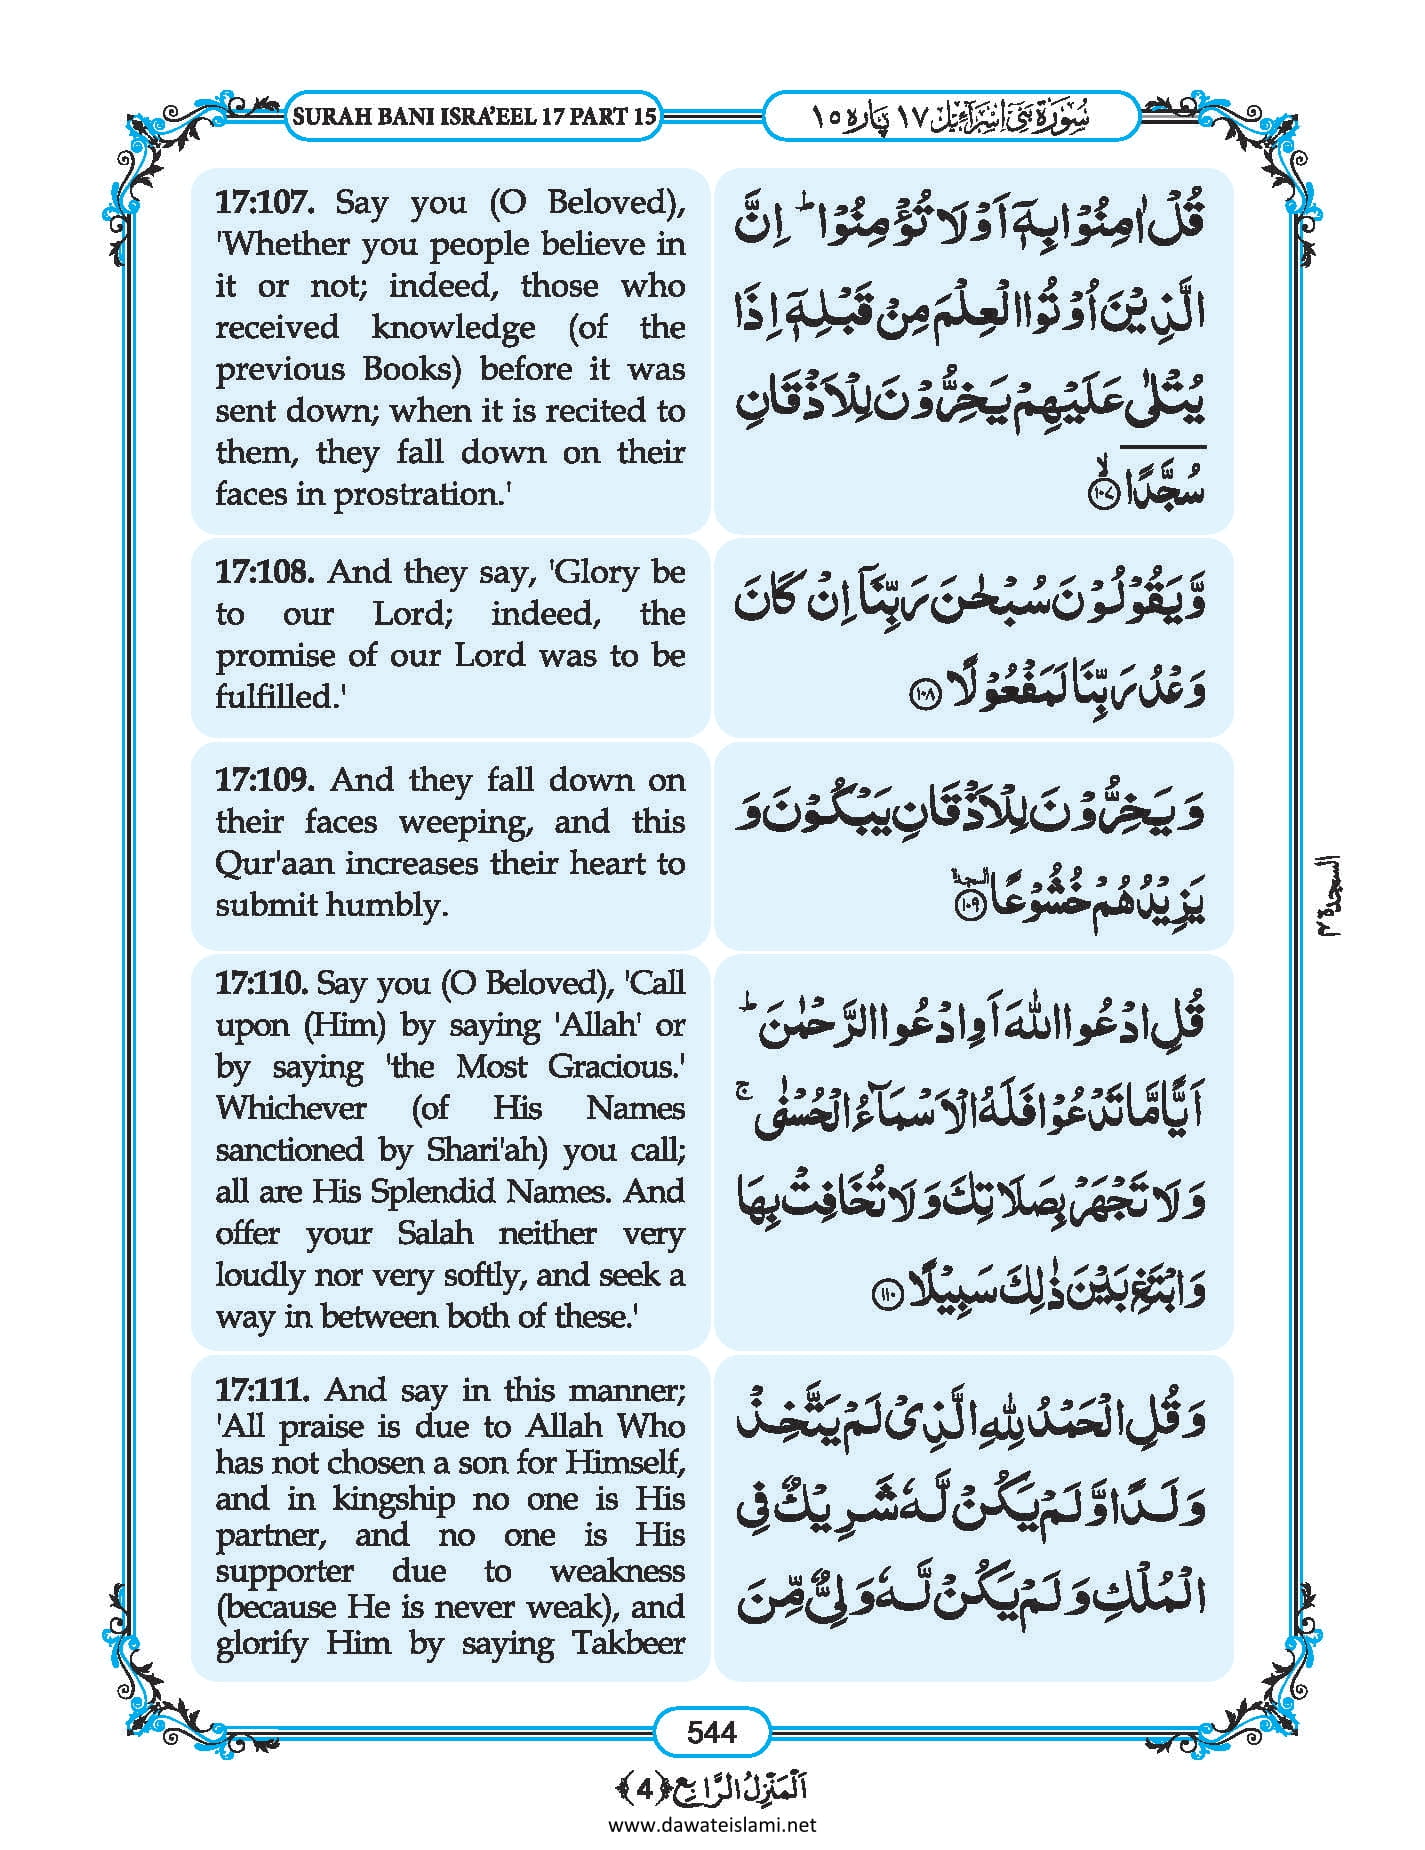 SURAH BANI ISRA'EEL 17 PART 15
سُوۡرَۃُ بَنِیۡۤ اِسۡرَآءِیۡل ۱۷ پارہ ۱۵
17:107. Say you (O Beloved),
'Whether you people believe in
it or not; indeed, those who
received knowledge (of the
previous Books) before it was
sent down; when it is recited to
them, they fall down on their
faces in prostration.'
قُلْ اٰمِنُوْا بِهٖۤ اَوْ لَا تُؤْمِنُوْاؕ اِنَّ
الَّذِیْنَ اُوْتُوا الْعِلْمَ مِنْ قَبْلِهٖۤ اِذَا
یُتْلٰى عَلَیْهِمْ یَخِرُّوْنَ لِلْاَذْقَانِ
سُجَّدًاۙ۝۱۰۷
17:108. And they say, 'Glory be
to our Lord; indeed, the
promise of our Lord was to be
fulfilled.'
وَّ یَقُوْلُوْنَ سُبْحٰنَ رَبِّنَاۤ اِنْ كَانَ
وَعْدُ رَبِّنَا لَمَفْعُوْلًا۝۱۰۸
17:109. And they fall down on
their faces weeping, and this
Qur'aan increases their heart to
submit humbly.
وَ یَخِرُّوْنَ لِلْاَذْقَانِ یَبْكُوْنَ وَ
یَزِیْدُهُمْ خُشُوْعًا۝۱۰۹ السجدة
السجدة ۴
17:110. Say you (O Beloved), 'Call
upon (Him) by saying 'Allah' or
by saying 'the Most Gracious.'
Whichever (of His Names
sanctioned by Shari'ah) you call;
all are His Splendid Names. And
offer your Salah neither very
loudly nor very softly, and seek a
way in between both of these.'
قُلِ ادْعُوا اللّٰهَ اَوِ ادْعُوا الرَّحْمٰنَؕ
اَیًّا مَّا تَدْعُوْا فَلَهُ الْاَسْمَآءُ الْحُسْنٰىۚ
وَ لَا تَجْهَرْ بِصَلَاتِكَ وَ لَا تُخَافِتْ بِهَا
وَ ابْتَغِ بَیْنَ ذٰلِكَ سَبِیْلًا۝۱۱۰
17:111. And say in this manner;
'All praise is due to Allah Who
has not chosen a son for Himself,
and in kingship no one is His
partner, and no one is His
supporter due to weakness
(because He is never weak), and
glorify Him by saying Takbeer
وَ قُلِ الْحَمْدُ لِلّٰهِ الَّذِیْ لَمْ یَتَّخِذْ
وَلَدًا وَّ لَمْ یَكُنْ لَّهٗ شَرِیْكٌ فِی
الْمُلْكِ وَ لَمْ یَكُنْ لَّهٗ وَلِیٌّ مِّنَ
544
اَلْمَنْزِلُ الرَّابِع ﴿4﴾
www.dawateislami.net